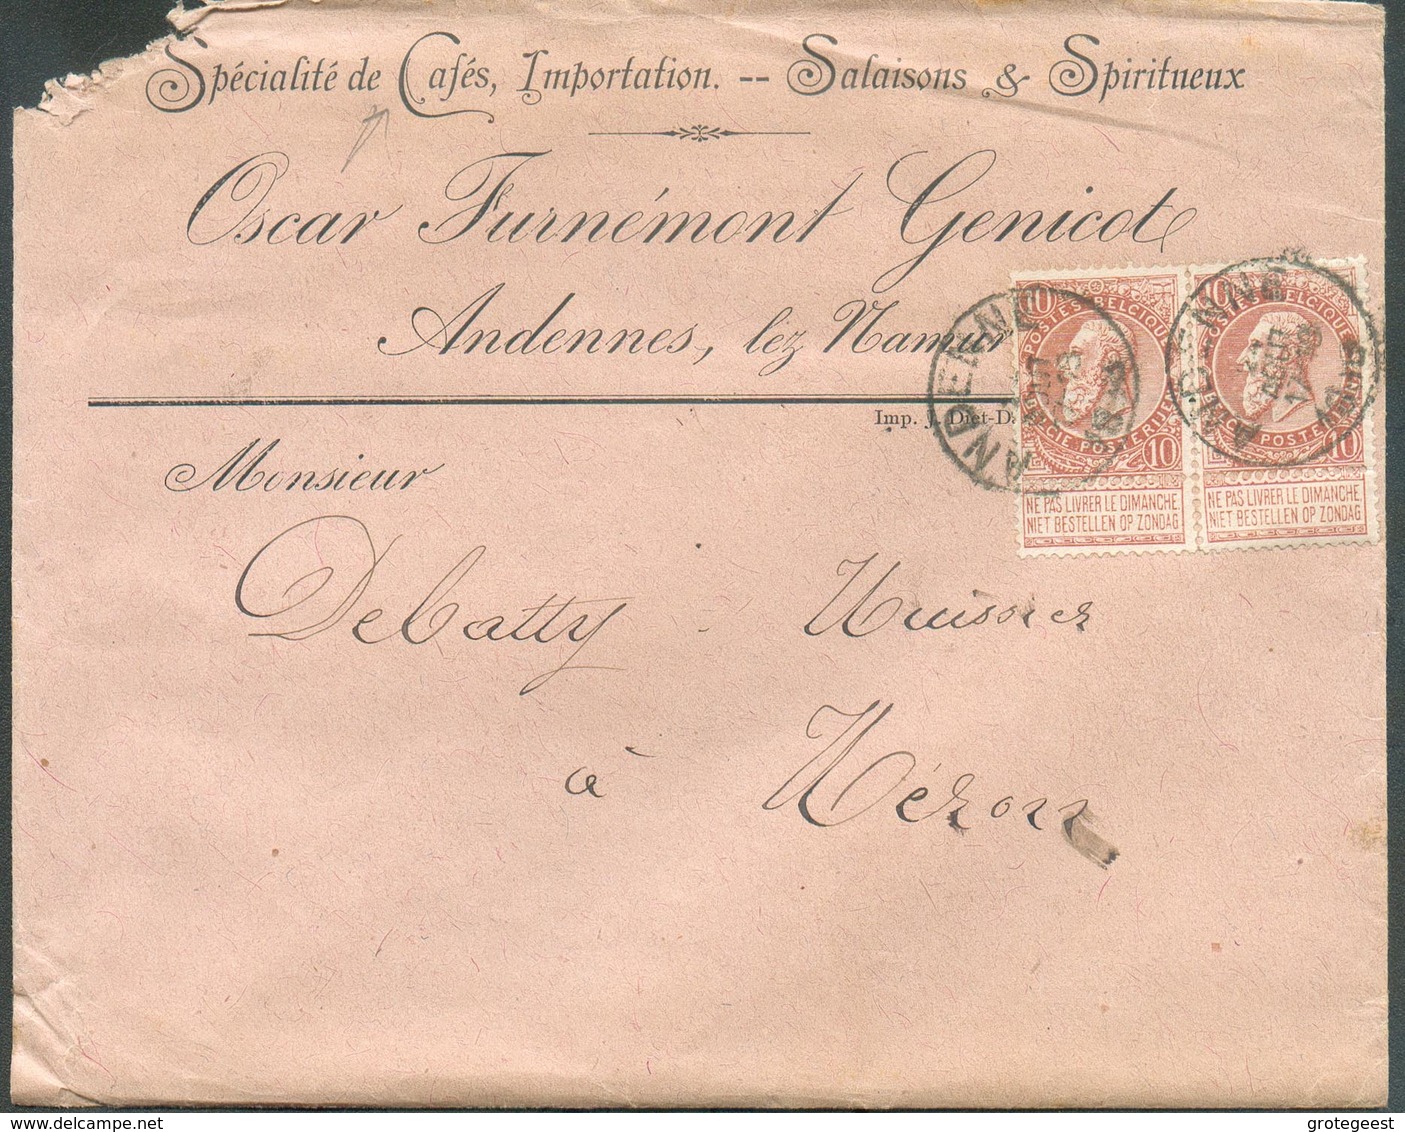 Spécialité de Cafés, Importation. -- Salaisons & Spiritueux
Oscar Furnémont Genicot
Andennes, lez Namur
Imp. J. Diet-D
Monsieur
Debatty Huissier
à Héron
10 10
POSTES BELGIQUE
NE PAS LIVRER LE DIMANCHE,
NIET BESTELLEN OP ZONDAG
10 10
NE PAS LIVRER LE DIMANCHE,
NIET BESTELLEN OP ZONDAG
ANDENNE
ANDENNE
delcampe.net
grotegeest